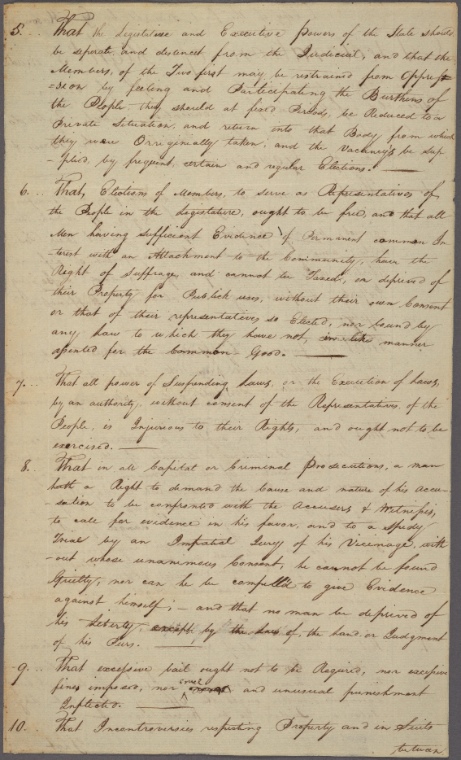 5. That the Legislative and Executive Powers of the State should
be seperate and distinct from the Judicial, and that the
Members, of the Two first may be restrained from Oppres=
=sion by feeling and Participating the Burthens of
the People they should at fixed Periods, be Reduced to a
Private Situation, and return into that Body, from which
they were Orreginally taken, and the Vacancys be sup
=plied, by frequent, certain and regular Elections.
6. That, Elections of Members, to serve as Representatives of
the People in the Legislature, ought to be free, and that all
Men having sufficient Evidence of Permanent common In
terest with an Attachment to the Community, have the
Right of Suffrage, and cannot be Taxed, or deprived of
their Property for Publick uses, without their own Consent
or that of their representatives so Elected, nor bound by
any Law to which they have not, in like manner
assented for the Common Good.
7. That all power of Suspending Laws, or the Execution of Laws,
by an authority, without consent of the Representatives, of the
People, is Injurious to their Rights, and ought not to be
exercised.
8. That in all Capital or Creminal Prosecutions, a man
hath a Right to demand the Cause and nature of his Accu=
=sation to be confronted with the Accusers & Witnesses,
to call for evidence in his favor, and to a Spedy
Trial by an Impatial Jurey of his Vicenage, with
=out whose unanemous Consent, he cannot be found
Gueilty, nor can he be compell'd to give Evidence
against himself; and that no man be deprived of
his Leberty except by the Law of, the Land or Judgment
of his Peers.
9. That excessive bail ought not to be Required, nor excessive
fines imposed, nor cruel and unusual punishment
Inflicted.
10. That Incontroversies respecting Property and in Suits
between